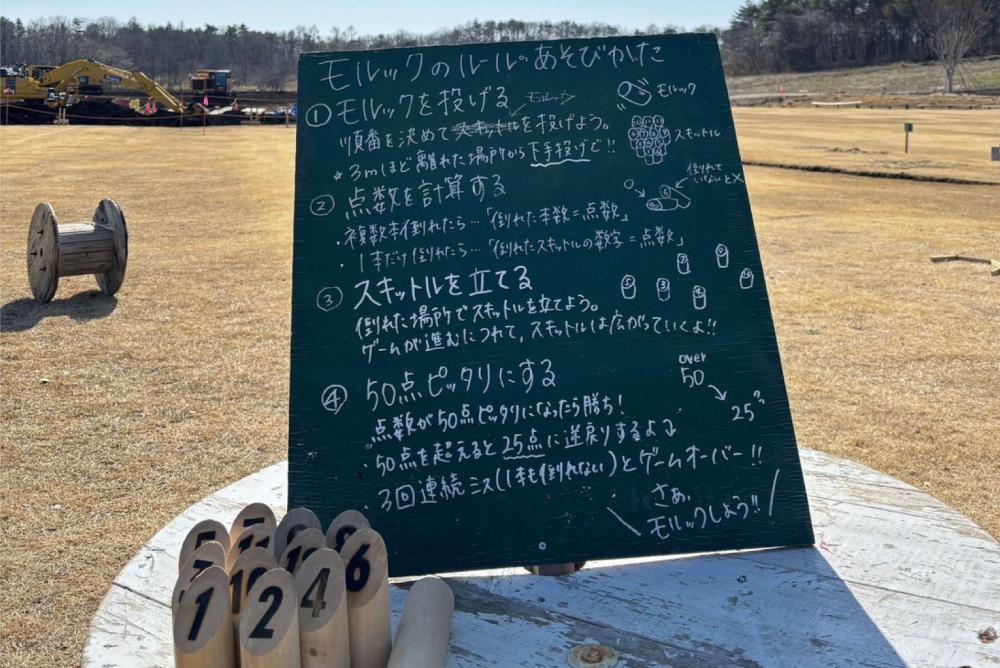 モルックのルール・あそびかた
① モルックを投げる
モルック
順番を決めて を投げよう。
☆ 3mほど離れた場所から下手投げで!!
モルック
スキットル
② 点数を計算する
・複数本倒れたら…「倒れた本数=点数」
・1本だけ倒れたら…「倒れたスキットルの数字=点数」
倒れて
いないと×
③ スキットルを立てる
倒れた場所でスキットルを立てよう。
ゲームが進むにつれて、スキットルは広がっていくよ!!
④ 50点ピッタリにする
・点数が50点ピッタリになったら勝ち!
・50点を超えると25点に逆戻りするよ
・3回連続ミス(1本も倒れない)とゲームオーバー!!
over
50
25
さぁ、
モルックしよう!!
1
2
4
6